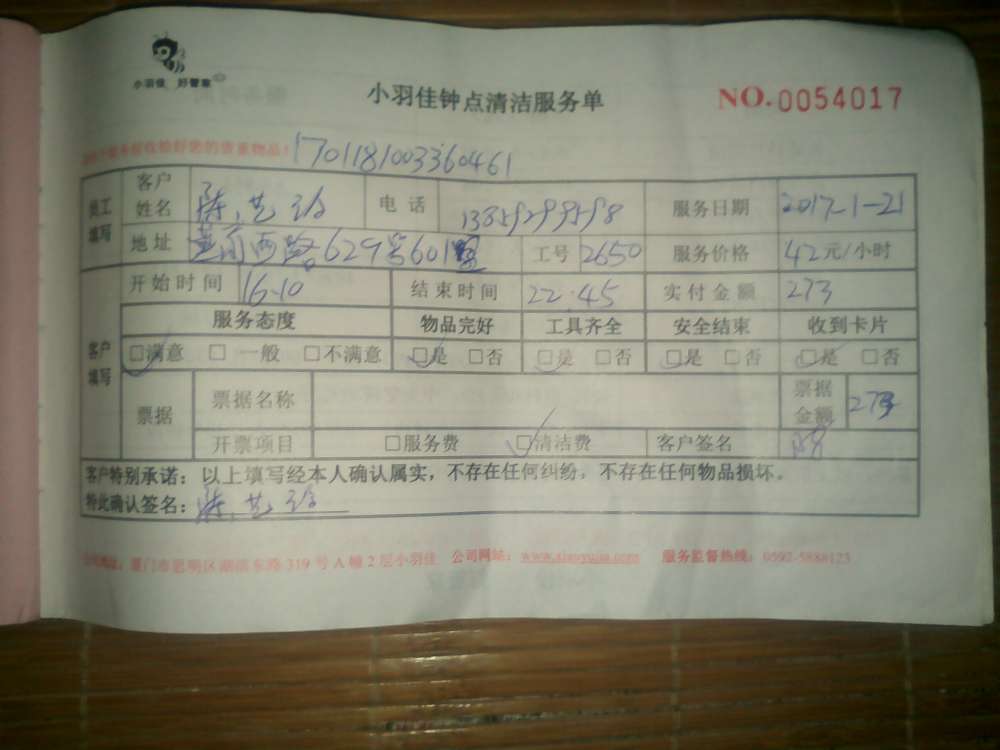 小羽佳 好管家
小羽佳钟点清洁服务单
NO.0054017
1701181003360461
员工填写 客户姓名 陈艺 电话 服务日期 2017-1-21
地址 西路629号601 工号 2650 服务价格 42元/小时
开始时间 16-10 结束时间 22:45 实付金额 273
客户填写 服务态度 物品完好 工具齐全 安全结束 收到卡片
□满意 □一般 □不满意 □是 □否 □是 □否 □是 □否 □是 □否
票据 票据名称 票据金额 273
开票项目 □服务费 □清洁费 客户签名
客户特别承诺：以上填写经本人确认属实，不存在任何纠纷，不存在任何物品损坏。
特此确认签名：陈艺
公司地址：厦门市思明区湖滨东路319号A幢2层小羽佳 公司网站：www.xiaoyujia.com 服务监督热线：0592-5888123